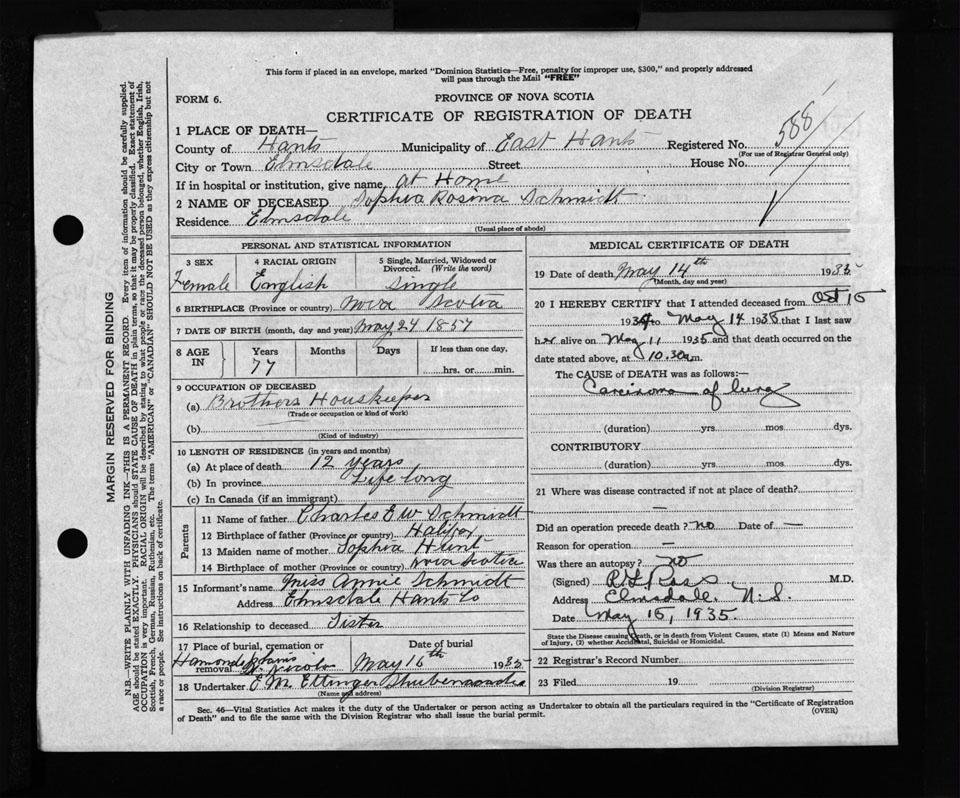 This form if placed in an envelope, marked "Dominion Statistics—Free, penalty for improper use, $300," and properly addressed
will pass through the Mail "FREE"
FORM 6.
PROVINCE OF NOVA SCOTIA
CERTIFICATE OF REGISTRATION OF DEATH
588
1 PLACE OF DEATH—
County of Hants Municipality of East Hants Registered No.
(For use of Registrar General only)
City or Town Elmsdale Street House No.
If in hospital or institution, give name at Home
2 NAME OF DECEASED Sophia Rosina Schmidt
Residence Elmsdale
(Usual place of abode)
PERSONAL AND STATISTICAL INFORMATION
3 SEX 4 RACIAL ORIGIN 5 Single, Married, Widowed or Divorced. (Write the word)
Female English Single
6 BIRTHPLACE (Province or country) Nova Scotia
7 DATE OF BIRTH (month, day and year) May 24 1857
8 AGE IN Years Months Days If less than one day,
77 hrs. or min.
9 OCCUPATION OF DECEASED
(a) Brothers Houskeeper
(Trade or occupation or kind of work)
(b)
(Kind of industry)
10 LENGTH OF RESIDENCE (in years and months)
(a) At place of death 12 years
(b) In province Life long
(c) In Canada (if an immigrant)
Parents
11 Name of father Charles E W Schmidt
12 Birthplace of father (Province or country) Halifax
13 Maiden name of mother Sophia Hunt
14 Birthplace of mother (Province or country) Nova Scotia
15 Informant's name Miss Annie Schmidt
Address Elmsdale Hants Co
16 Relationship to deceased Sister
17 Place of burial, cremation or removal Date of burial
May 16th 1935
18 Undertaker E M Ettinger Shubenacadie
(Name and address)
MEDICAL CERTIFICATE OF DEATH
19 Date of death May 14th 1935
(Month, day and year)
20 I HEREBY CERTIFY that I attended deceased from Oct 15
1934 to May 14 1935 that I last saw
her alive on May 11 1935 and that death occurred on the
date stated above, at 10.30 a.m.
The CAUSE OF DEATH was as follows:—
Carcinoma of lung
(duration) yrs. mos. dys.
CONTRIBUTORY
(duration) yrs. mos. dys.
21 Where was disease contracted if not at place of death?
—
Did an operation precede death? no Date of —
Reason for operation —
Was there an autopsy? no
(Signed) Ross M.D.
Address Elmsdale. N.S.
Date May 15, 1935.
State the Disease causing Death, or in death from Violent Causes, state (1) Means and Nature
of Injury, (2) whether Accidental, Suicidal or Homicidal.
22 Registrar's Record Number
23 Filed 19
(Division Registrar)
Sec. 46—Vital Statistics Act makes it the duty of the Undertaker or person acting as Undertaker to obtain all the particulars required in the "Certificate of Registration
of Death" and to file the same with the Division Registrar who shall issue the burial permit.
(OVER)
MARGIN RESERVED FOR BINDING
N.B.—WRITE PLAINLY WITH UNFADING INK—THIS IS A PERMANENT RECORD. Every item of information should be carefully supplied.
AGE should be stated EXACTLY. PHYSICIANS should STATE CAUSE OF DEATH in plain terms, so that it may be properly classified. Exact statement of
OCCUPATION is very important. RACIAL ORIGIN will be described by stating to what people or race the deceased person belonged, whether English, Irish,
Scottish, French, German, Russian, Ruthenian, etc. The terms "AMERICAN" or "CANADIAN" SHOULD NOT BE USED as they express citizenship but not
a race or people. See instructions on back of certificate.